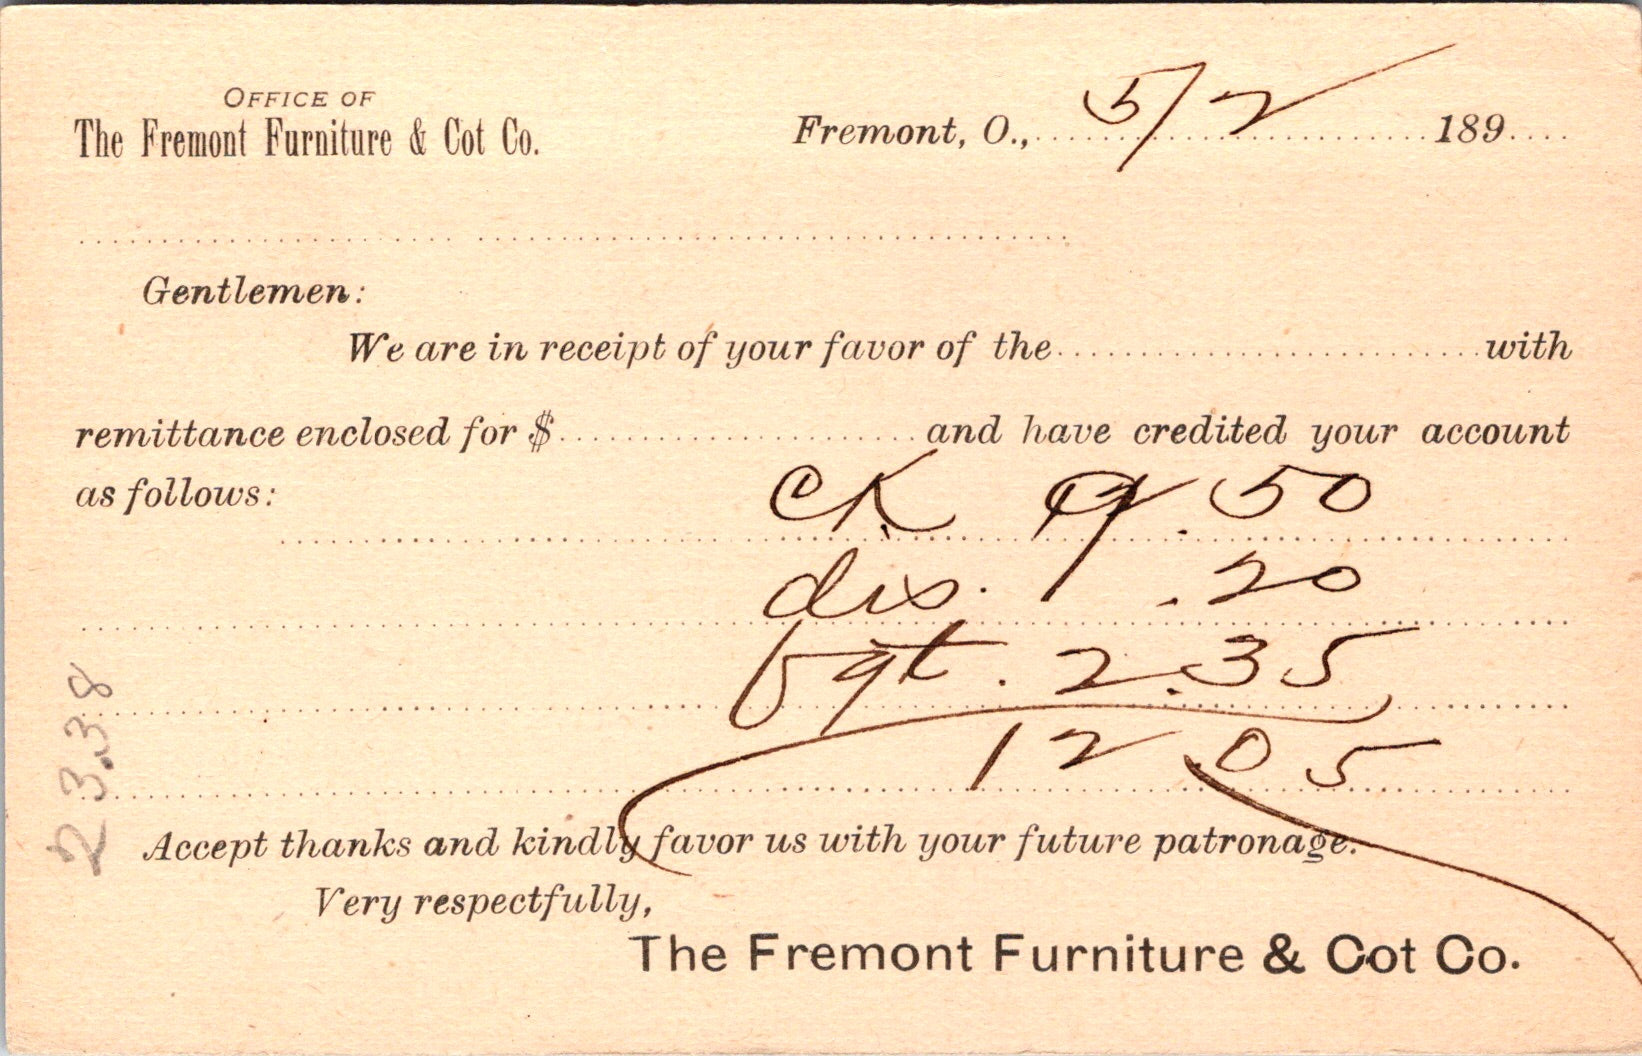 OFFICE OF
The Fremont Furniture & Cot Co.
Fremont, O., 5/2 189
Gentlemen:
We are in receipt of your favor of the with
remittance enclosed for $ and have credited your account
as follows:
CK 9.50
dis. .20
fgt. 2.35
12.05
Accept thanks and kindly favor us with your future patronage.
Very respectfully,
The Fremont Furniture & Cot Co.
23.38